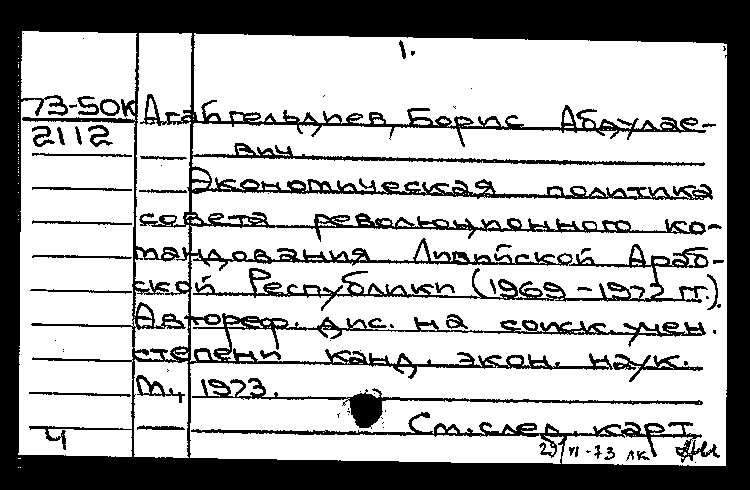 1.
73-50к Агабгельдиев, Борис Абдулае-
2112
вич.
Экономическая политика
совета революционного ко-
мандования Ливийской Араб-
ской Республики (1969-1972 гг.).
Автореф. дис. на соиск. учен.
степени канд. экон. наук.
М., 1973.
См. след. карт.
4
29/VI-73 лк